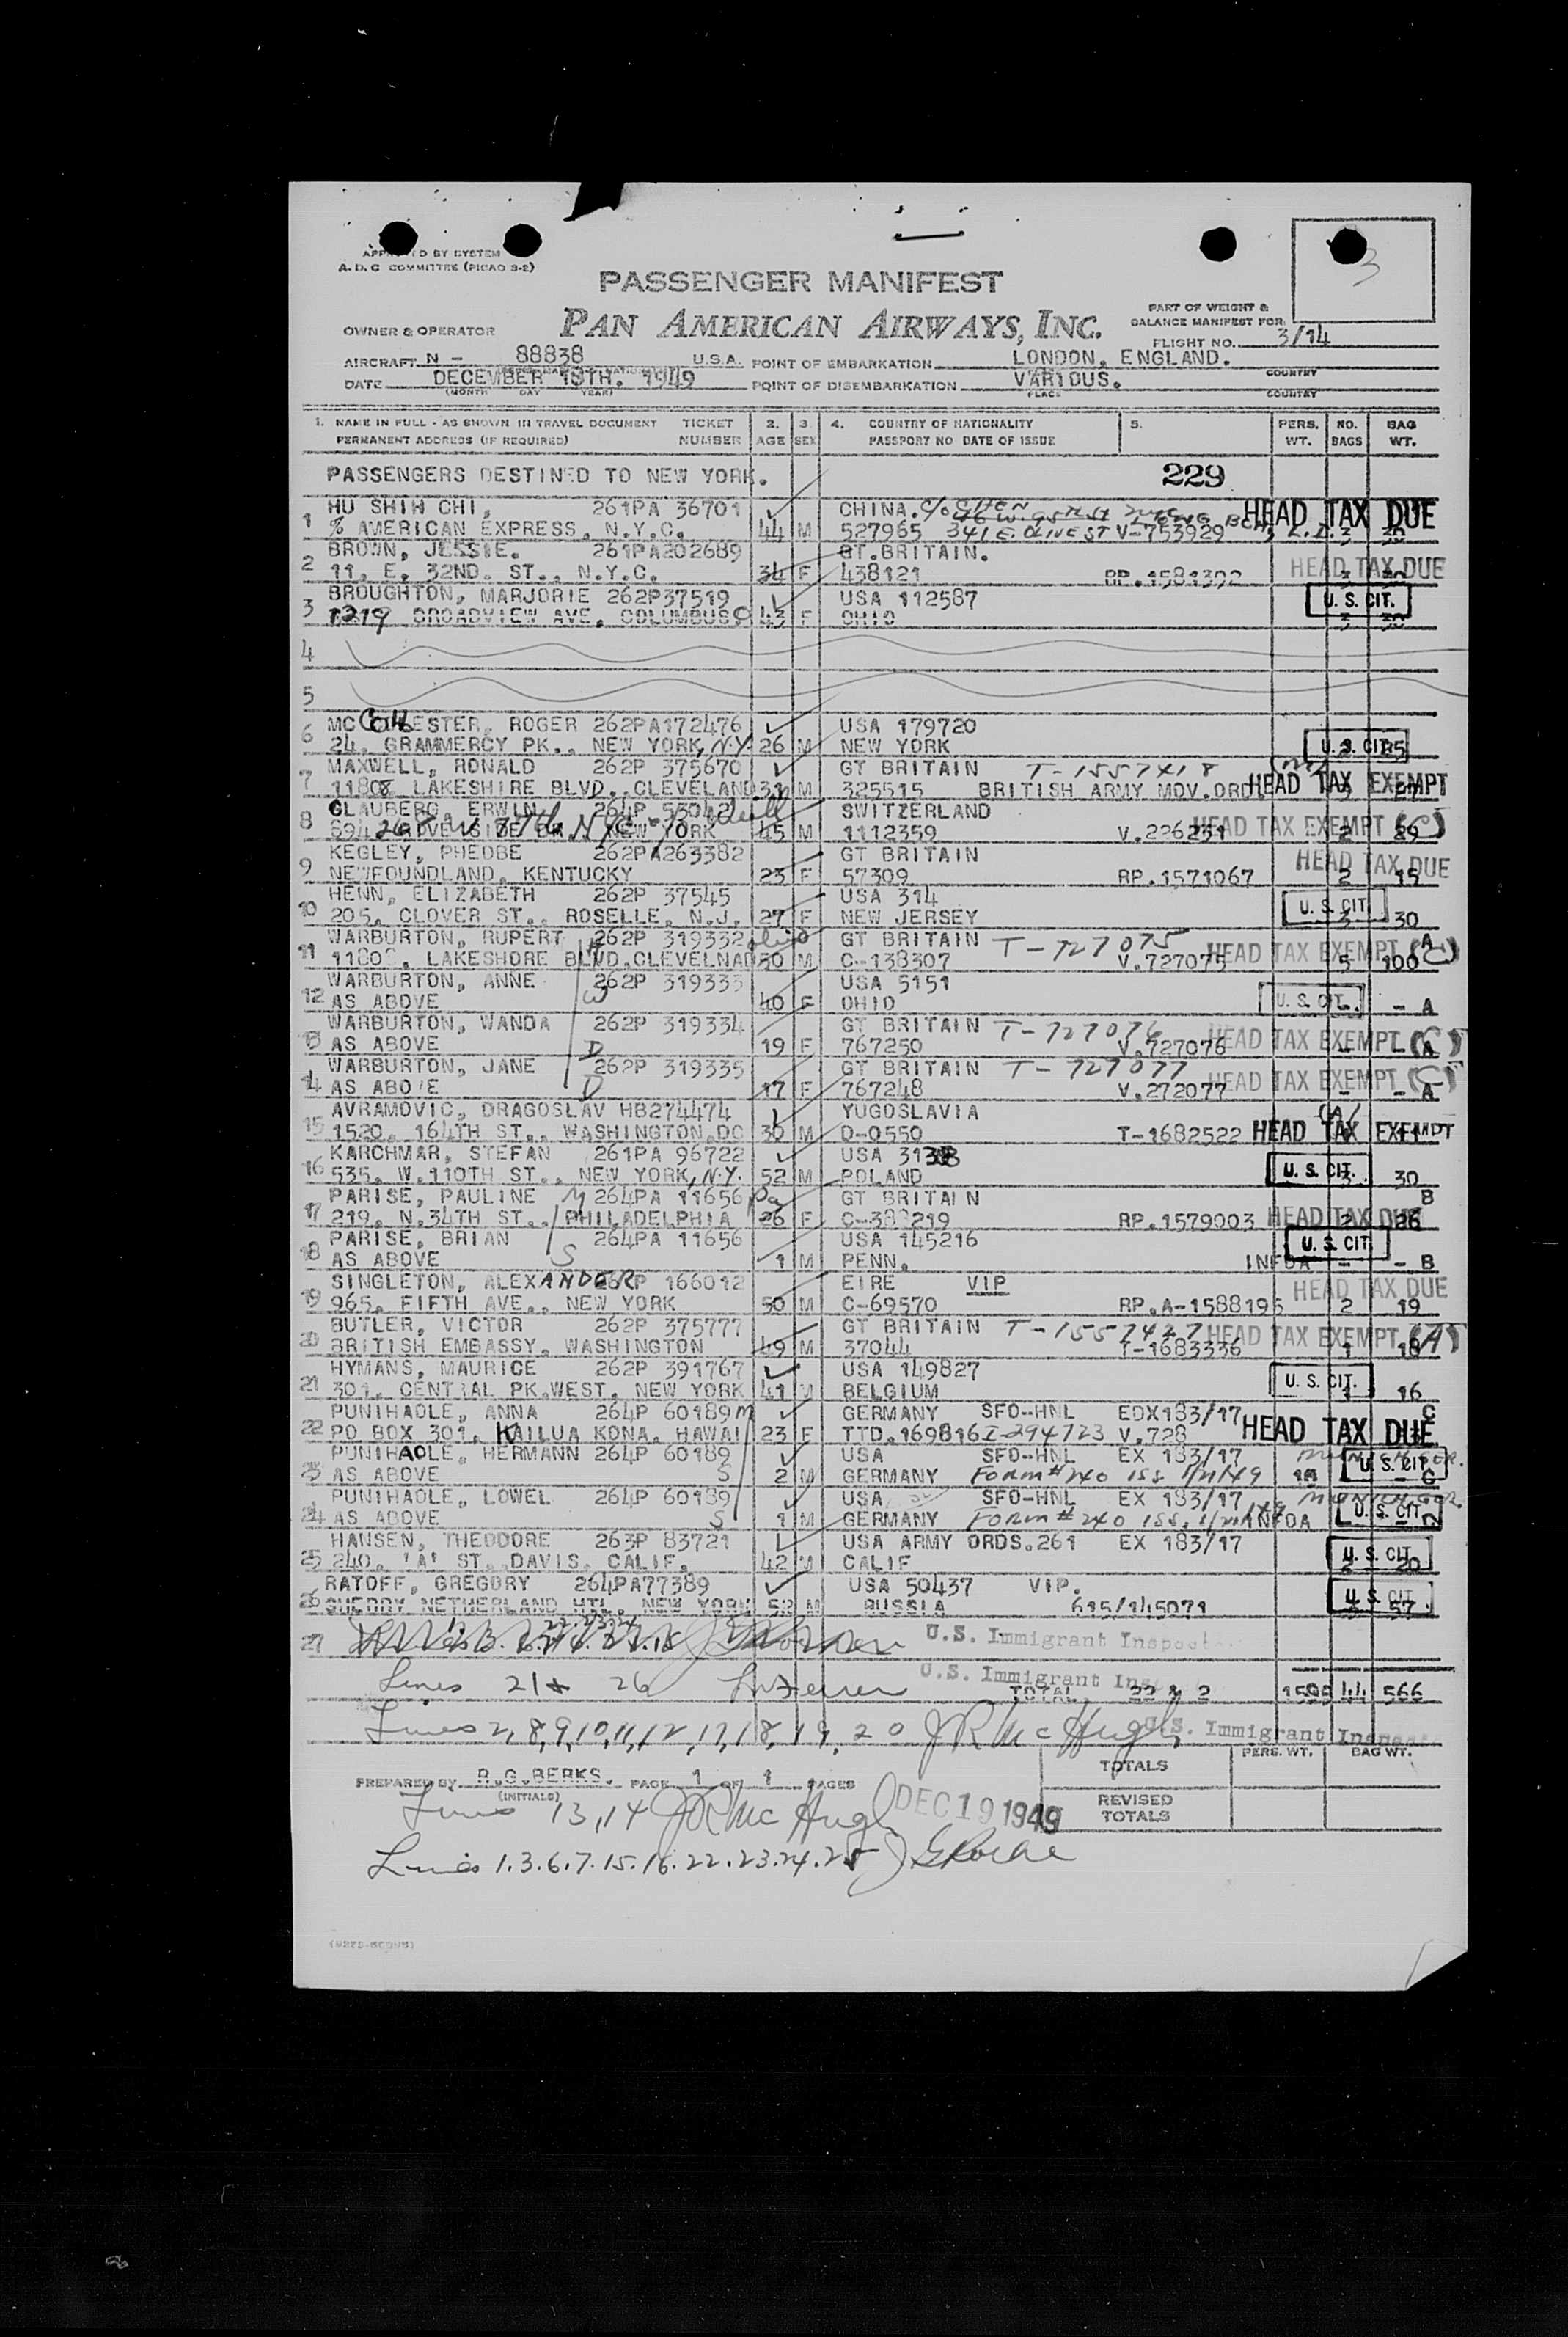 APPROVED BY SYSTEM
A. D. C COMMITTEE (PICAO 3-2)
3
PASSENGER MANIFEST
PART OF WEIGHT &
BALANCE MANIFEST FOR
OWNER & OPERATOR PAN AMERICAN AIRWAYS, INC.
FLIGHT NO. 3/14
AIRCRAFT N - 88838 U.S.A. POINT OF EMBARKATION LONDON, ENGLAND.
COUNTRY
DATE DECEMBER 18TH. 1949 POINT OF DISEMBARKATION VARIOUS.
(MONTH DAY YEAR) PLACE COUNTRY
1. NAME IN FULL - AS SHOWN IN TRAVEL DOCUMENT TICKET 2. 3. 4. COUNTRY OF NATIONALITY 5. PERS. NO. BAG
PERMANENT ADDRESS (IF REQUIRED) NUMBER AGE SEX PASSPORT NO DATE OF ISSUE WT. BAGS WT.
PASSENGERS DESTINED TO NEW YORK. 229
HU SHIH CHI, 261PA 36701 CHINA. C/O CHEN HEAD TAX DUE
1 % AMERICAN EXPRESS, N.Y.C. 44 M 527965 341 E. OLIVE ST V-753929 L.I.
BROWN, JESSIE. 261PA202689 GT.BRITAIN.
2 11, E, 32ND. ST., N.Y.C. 34 F 438121 RP.1581392 HEAD TAX DUE
BROUGHTON, MARJORIE 262P37519 USA 112587
3 1219 BROADVIEW AVE, COLUMBUS 43 F OHIO U. S. CIT.
4
5
6 MC COLLESTER, ROGER 262PA172476 USA 179720
24, GRAMMERCY PK., NEW YORK, N.Y. 26 M NEW YORK U. S. CIT.
MAXWELL, RONALD 262P 375670 GT BRITAIN T-1557418
7 11808 LAKESHIRE BLVD., CLEVELAND 31 M 325515 BRITISH ARMY MOV.ORD. HEAD TAX EXEMPT
GLAUBERG, ERWIN 264P 53042 SWITZERLAND
8 NEW YORK 45 M 1112359 V.226231 HEAD TAX EXEMPT (C) 2 29
KEGLEY, PHEOBE 262PA263382 GT BRITAIN
9 NEWFOUNDLAND, KENTUCKY 23 F 57309 RP.1571067 HEAD TAX DUE 2 15
HENN, ELIZABETH 262P 37545 USA 314
10 205, CLOVER ST., ROSELLE, N.J. 27 F NEW JERSEY U. S. CIT. 3 30
WARBURTON, RUPERT H 262P 319332 GT BRITAIN T-727075 A
11 11808, LAKESHORE BLVD, CLEVELNAD 50 M C-138307 V.727075 HEAD TAX EXEMPT (C) 5 100
WARBURTON, ANNE 262P 319333 USA 5151
12 AS ABOVE W 40 F OHIO U. S. CIT. - A
WARBURTON, WANDA 262P 319334 GT BRITAIN T-727076
13 AS ABOVE D 19 F 767250 V.727076 HEAD TAX EXEMPT (C) - A
WARBURTON, JANE 262P 319335 GT BRITAIN T-727077
14 AS ABOVE D 17 F 767248 V.272077 HEAD TAX EXEMPT (C) - - A
AVRAMOVIC, DRAGOSLAV HB274474 YUGOSLAVIA
15 1520, 164TH ST., WASHINGTON.DC 30 M D-0550 T-1682522 HEAD TAX EXEMPT
KARCHMAR, STEFAN 261PA 96722 USA
16 535, W.110TH ST., NEW YORK, N.Y. 52 M POLAND U. S. CIT. 3 30
PARISE, PAULINE M 264PA 11656 GT BRITAIN B
17 219, N.34TH ST., PHILADELPHIA 26 F RP.1579003 HEAD TAX DUE 2 26
PARISE, BRIAN 264PA 11656 USA 145216 U. S. CIT.
18 AS ABOVE S 1 M PENN. INFOA - - B
SINGLETON, ALEXANDER 262P 166012 EIRE VIP
19 965, FIFTH AVE., NEW YORK 50 M C-69570 RP.A-1588195 HEAD TAX DUE 2 19
BUTLER, VICTOR 262P 375777 GT BRITAIN T-1557427
20 BRITISH EMBASSY, WASHINGTON 49 M 37044 T-1683336 HEAD TAX EXEMPT (A) 1 18
HYMANS, MAURICE 262P 391767 USA 149827
21 301, CENTRAL PK.WEST, NEW YORK 41 M BELGIUM U. S. CIT. 16
PUNIHAOLE, ANNA 264P 60189 M GERMANY SFO-HNL EDX183/17 C
22 PO BOX 301, KAILUA KONA, HAWAI 23 F TTD.169816 I-294723 V.728 HEAD TAX DUE
PUNIHAOLE, HERMANN 264P 60189 USA SFO-HNL EX 183/17
23 AS ABOVE S 2 M GERMANY FORM #240 ISS 1/21/49 U. S. CIT. C
PUNIHAOLE, LOWEL 264P 60189 USA SFO-HNL EX 183/17 MUNICH, GER.
24 AS ABOVE S 1 M GERMANY FORM #240 ISS. INFOA U. S. CIT.
HANSEN, THEODORE 263P 83721 USA ARMY ORDS.261 EX 183/17
25 240, 'A' ST. DAVIS, CALIF. 42 M CALIF U. S. CIT. 20
RATOFF, GREGORY 264PA77389 USA 50437 VIP.
26 SHERRY NETHERLAND HTL. NEW YORK 52 M RUSSIA 615/145071 U. S. CIT. 37
27 U.S. Immigrant Inspector
Lines 21 & 26 U.S. Immigrant Ins
TOTAL 22 & 2 1595 44 566
Lines 2, 8, 9, 10, 11, 12, 17, 18, 19, 20 J R McHugh U.S. Immigrant Inspec
PERS. WT. BAG WT.
TOTALS
PREPARED BY R.G.BERKS. PAGE 1 OF 1 PAGES
(INITIALS)
REVISED
TOTALS
Lines 13, 14 J R McHugh DEC 19 1949
Lines 1.3.6.7.15.16.22.23.24.25